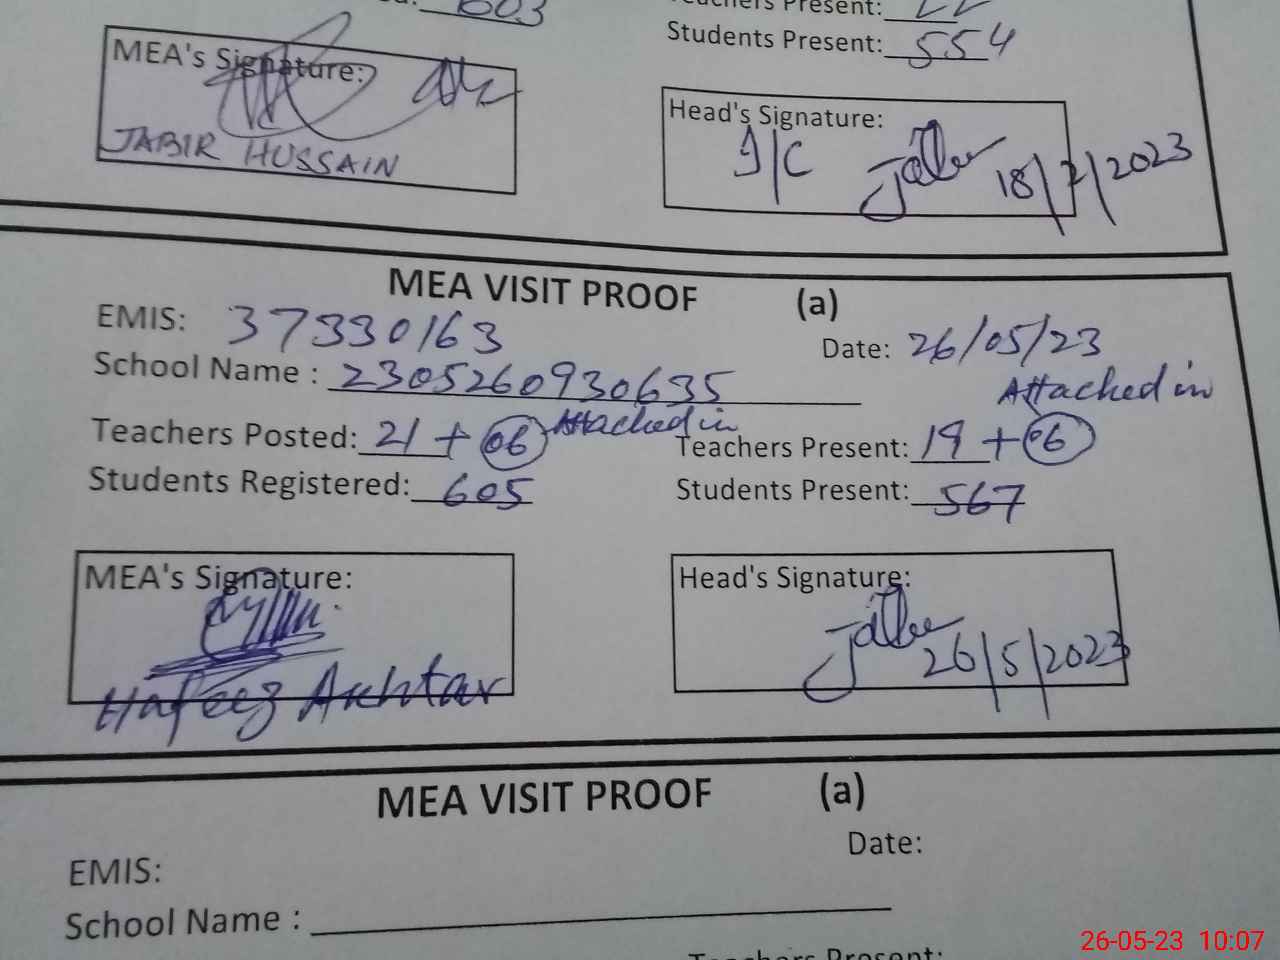 603
Teachers Present: 22
Students Present: 554
MEA's Signature:
JABIR HUSSAIN
Head's Signature:
I/C 18/7/2023
MEA VISIT PROOF (a)
EMIS: 37330163
Date: 26/05/23
School Name : 2305260930635
Attached in
Teachers Posted: 21 + 06 Attached in
Teachers Present: 19 + 06
Students Registered: 605
Students Present: 567
MEA's Signature:
Hafeez Akhtar
Head's Signature:
26/5/2023
MEA VISIT PROOF (a)
Date:
EMIS:
School Name :
Teachers Present:
26-05-23 10:07